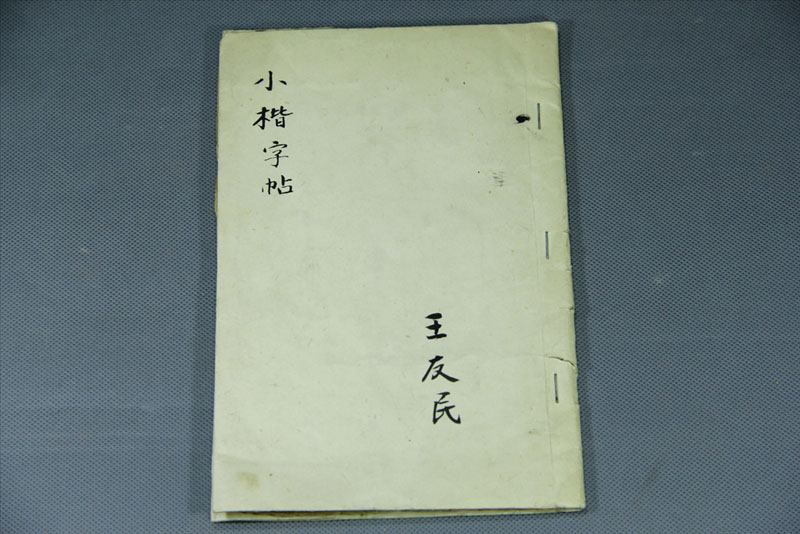 小楷字帖
王友民